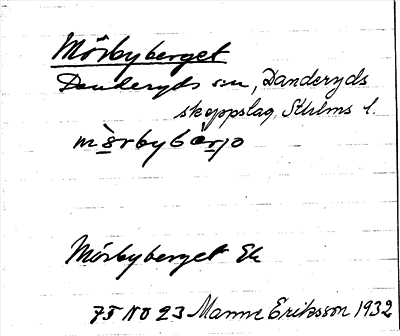 Mörbyberget
Danderyds sn, Danderyds
skeppslag, Sthlms l.
Mörbyberget Ek
7J NO 23 Manne Eriksson 1932